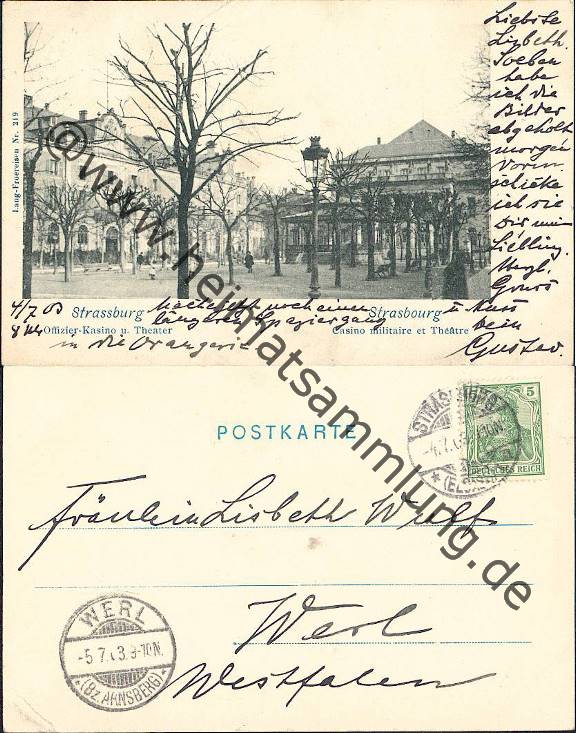 Liebste
Lisbeth.
Soeben
habe
ich die
Bilder
abgeholt
morgen
Vorm.
schicke
ich sie
Dir mein
Liebling.
Gruss
u. Kuss
Dein
Gustav.
4/7 03
8 Uhr
Mache jetzt noch einen
längeren Spaziergang
in die Orangerie
Lang-Froereisen Nr. 219
Strassburg
Offizier-Kasino u. Theater
Strasbourg
Casino militaire et Théâtre
www.heimatsammlung.de
POSTKARTE
STRASSBURG
-4.7.03.9-10N.
* (ELS.)
5
DEUTSCHES REICH
Fräulein Lisbeth Wulff
Werl
Westfalen
WERL
-5.7.03.9-10N.
*(Bz.ARNSBERG)*